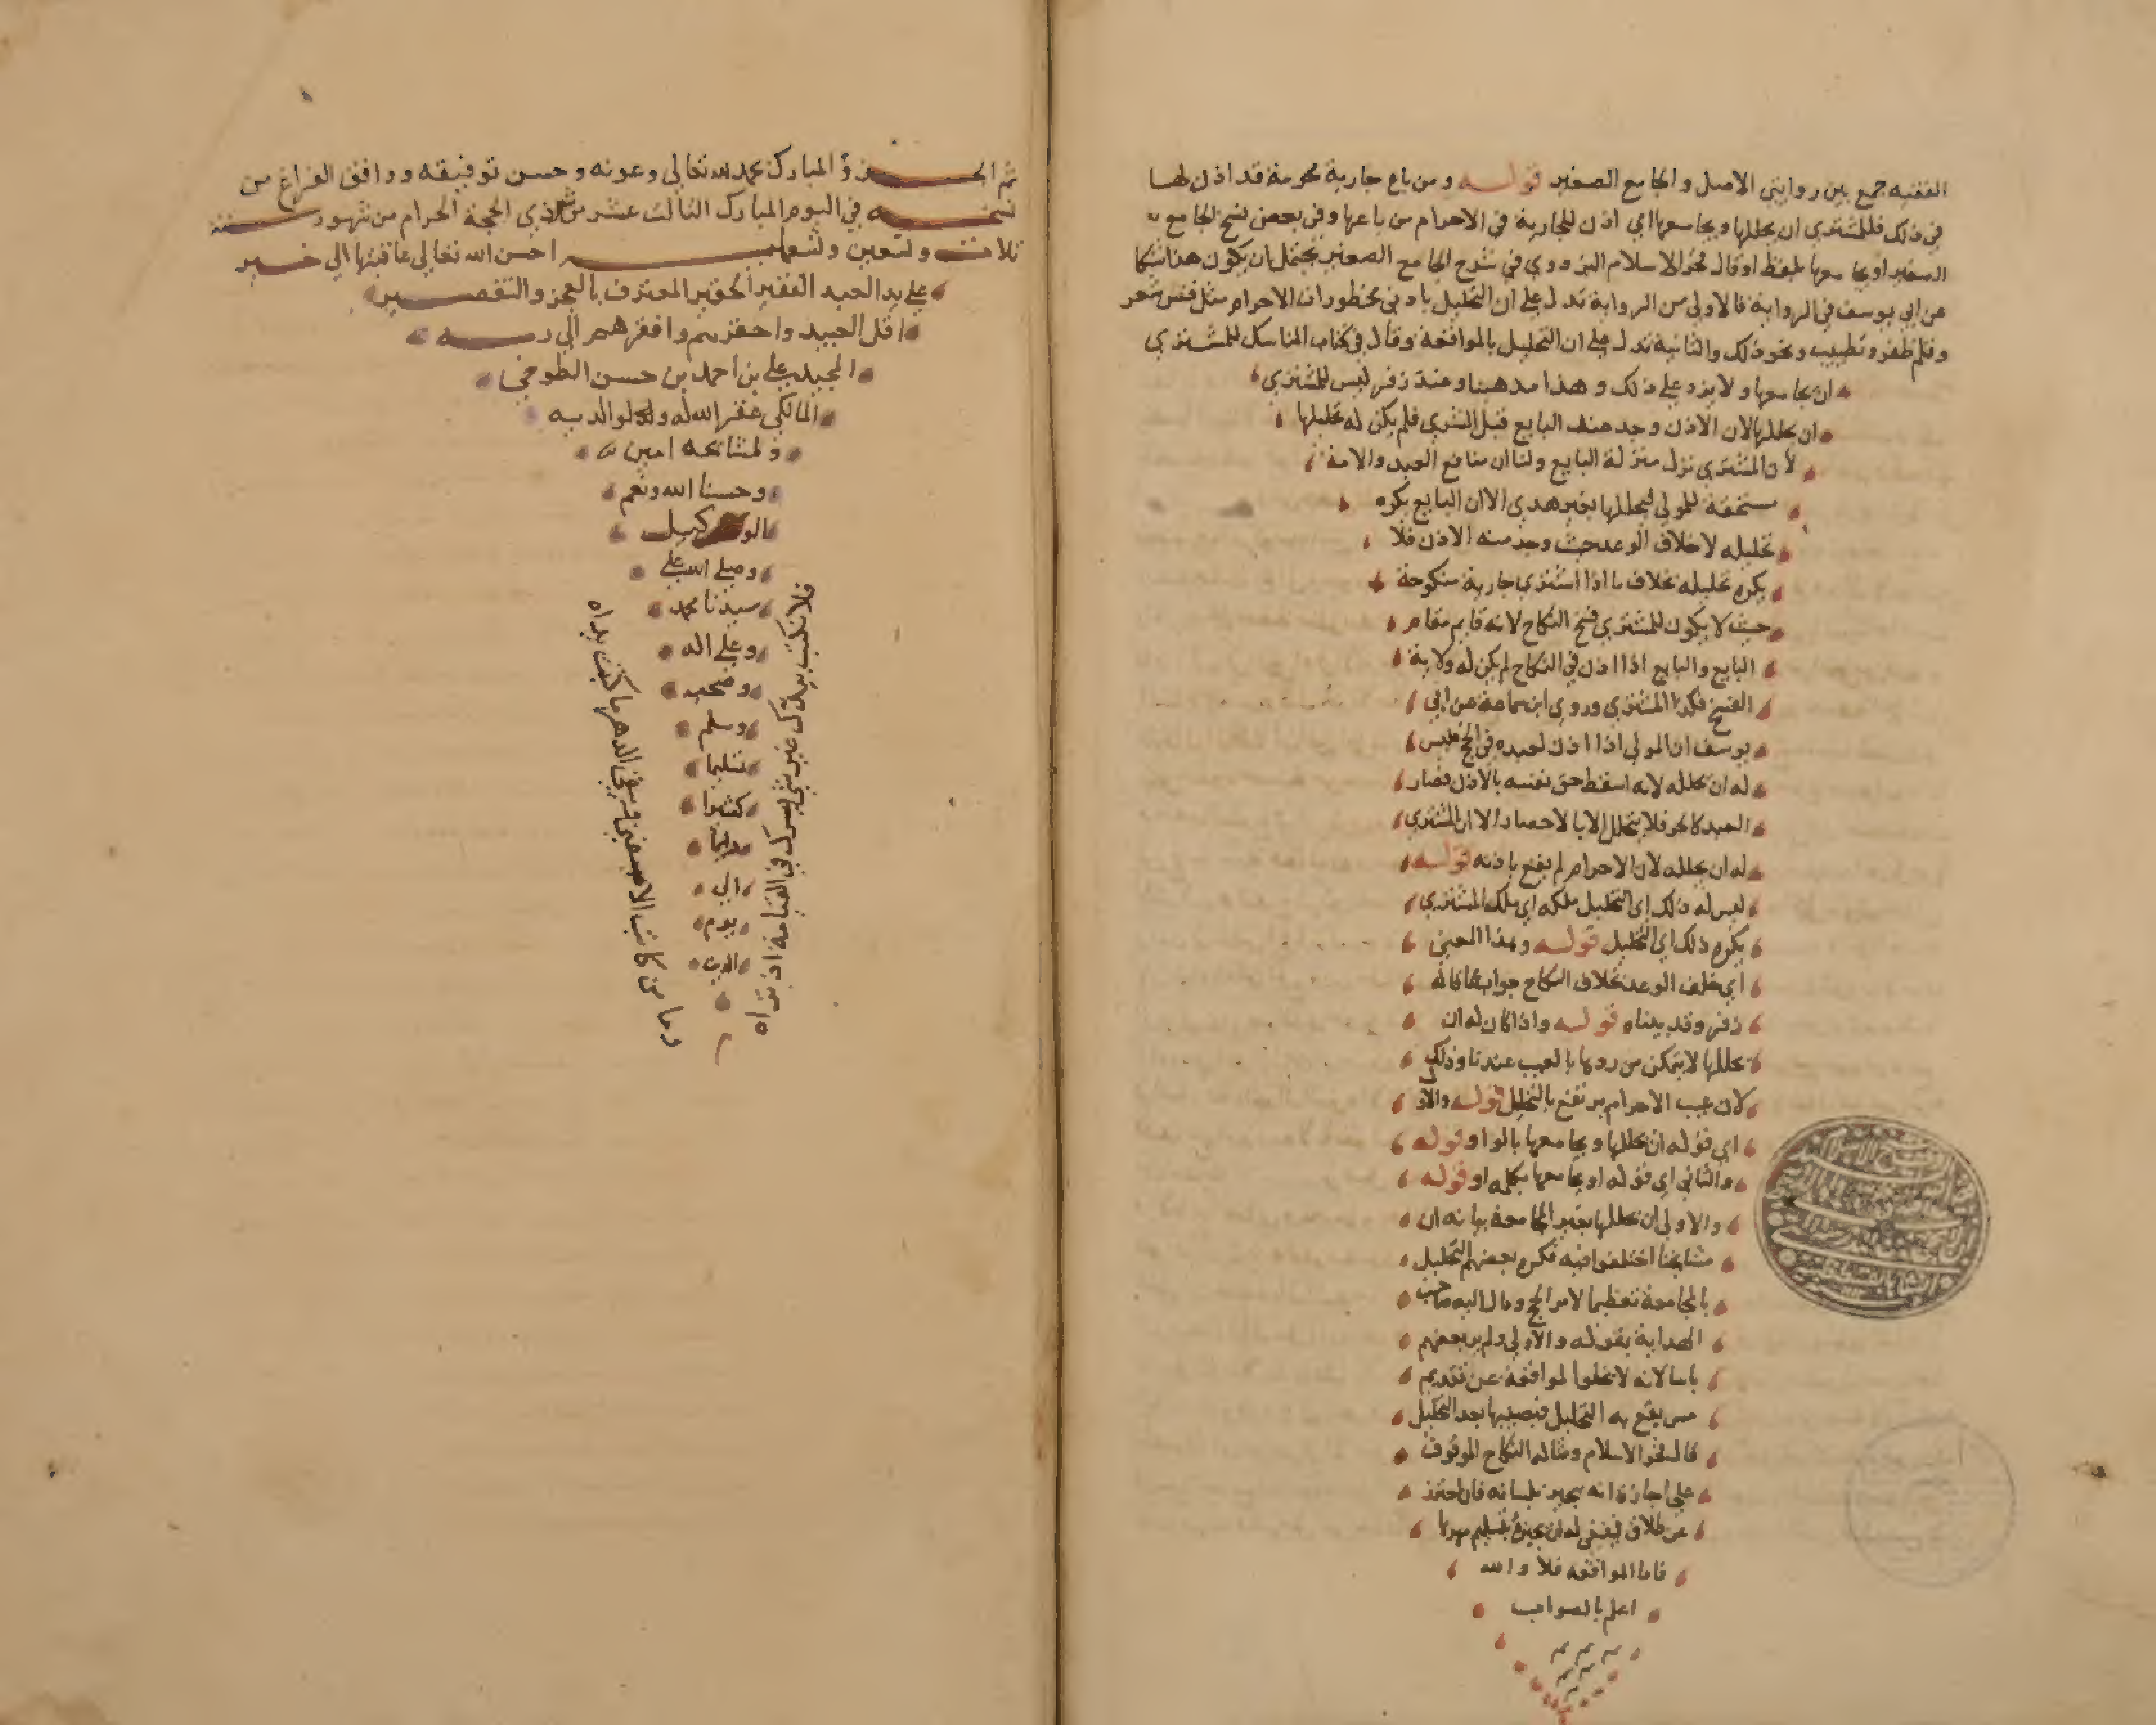 الفقيه جمع بين روايتي الاصل والجامع الصغير قوله ومن باع جارية محرمة قد اذن لها
في ذلك فللمشتري ان يحللها ويجامعها اي اذن للجارية في الاحرام من باعها وفي بعض نسخ الجامع
الصغير او يجامعها بلفظ او قال فخر الاسلام البزدوي في شرح الجامع الصغير يحتمل ان يكون هذا شكا
عن ابي يوسف في الرواية فالاولى من الرواية تدل على ان التحليل بادنى محظورات الاحرام مثل قص شعر
وقلم ظفر وتطييب ونحو ذلك والثانية تدل على ان التحليل بالمواقعة وقال في كتاب المناسك للمشتري
ان يجامعها ولا يزد على ذلك وهذا مذهبنا وعند زفر ليس للمشتري
ان يحللها لان الاذن وجد من البايع قبل المشتري فلم يكن له تحليلها
لان المشتري نزل منزلة البايع ولنا ان منافع العبد والامة
مستحقة للمولى فيحللها بغير هدي الا ان البايع يكره
تحليله لاخلاف الوعد حيث وجد منه الاذن فلا
يكره تحليله بخلاف ما اذا اشترى جارية منكوحة
حيث لا يكون للمشتري فسخ النكاح لانه قايم مقام
البايع والبايع اذا اذن في النكاح لم يكن له ولاية
الفسخ فكذا المشتري وروى ابن سماعة عن ابي
يوسف ان المولى اذا اذن لعبده في الحج فليس
له ان يحلله لانه اسقط حق نفسه بالاذن فصار
العبد كالحر فلا يتحلل الا بالاحصار الا ان المشتري
له ان يحلله لان الاحرام لم يقع باذنه قوله
ليس له ذلك اي التحليل ملكه اي ملك المشتري
يكره ذلك اي التحليل قوله وهذا المعنى
اي خلف الوعد بخلاف النكاح جواب عما قاله
زفر وقد بيناه قوله واذا كان له ان
يحللها لا يتمكن من ردها بالعيب عندنا وذلك
لان عيب الاحرام يرتفع بالتحليل قوله والاول
اي قوله ان يحللها ويجامعها بالواو قوله
والثاني اي قوله او يجامعها بكلمة او قوله
والاولى ان يحللها بغير المجامعة بيانه ان
مشايخنا اختلفوا فيه فكره بعضهم التحليل
بالمجامعة تعظيما لامر الحج ومال اليه صاحب
الهداية بقوله والاولى ولم ير بعضهم
باسا لانه لا تخلوا المواقعة عن تقديم
مس يقع به التحليل فيصيبها بعد التحليل
قال فخر الاسلام ومثاله النكاح الموقوف
على اجازة انه يجيز بلسانه فان
عن طلاق فينبغي له ان يجيزه بتسليم مهرها
فاما المواقعة فلا والله
اعلم بالصواب
تم الجزؤ المبارك بحمد لله تعالى وعونه وحسن توفيقه ووافق الفراغ من
نسخه في اليوم المبارك الثالث عشر من شهر ذي الحجة الحرام من شهور سنة
ثلاث وتسعين وتسعمايه احسن الله تعالى عاقبتها الى خير
على يد العبد الفقير الحقير المعترف بالعجز والتقصير
اقل العبيد واحقرهم وافقرهم الى ربه
المجيد علي بن احمد بن حسن الطوخي
المالكي غفر الله له ولوالديه
ولمشايخه امين
وحسبنا الله ونعم
الوكيل
وصلى الله على
سيدنا محمد
وعلى اله
وصحبه
وسلم
تسليما
كثيرا
دايما
الى
يوم
الدين
وما من كاتب الا سيفنى ويبقي الدهر ما كتبت يداه
فلا تكتب بيدك غير شيء يسرك في القيامة ان تراه